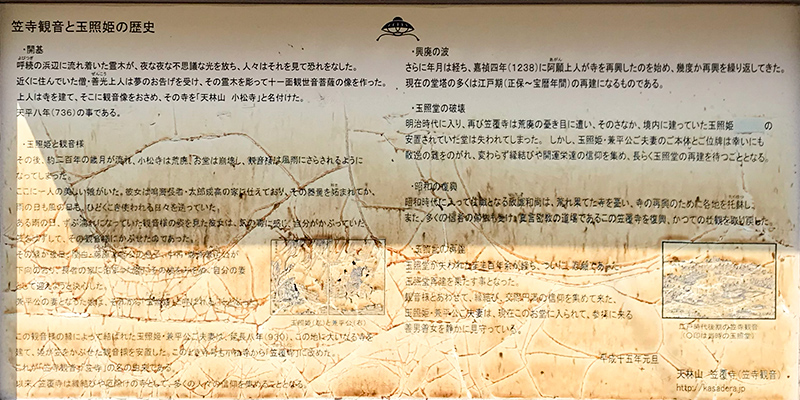 笠寺観音と玉照姫の歴史
・開基
呼続の浜辺に流れ着いた霊木が、夜な夜な不思議な光を放ち、人々はそれを見て恐れをなした。
近くに住んでいた僧・善光上人は夢のお告げを受け、その霊木を彫って十一面観世音菩薩の像を作った。
上人は寺を建て、そこに観音像をおさめ、その寺を「天林山 小松寺」と名付けた。
天平八年(736)の事である。
・玉照姫と観音様
その後、約二百年の歳月が流れ、小松寺は荒廃、お堂は崩壊し、観音様は風雨にさらされるように
なってしまった。
ここに一人の美しい娘がいた。彼女は鳴海長者・太郎成高の家に仕えており、その器量を妬まれてか、
雨の日も風の日も、ひどくこき使われる日々を送っていた。
ある雨の日、ずぶ濡れになっていた観音様の姿を見た彼女は、気の毒に感じ、自分がかぶっていた
笠をはずして、その観音様にかぶせたのであった。
この観音様の縁によって結ばれた玉照姫・兼平公ご夫妻は、延長八年(930)、この地に大いなる寺を
建て、姫が笠をかぶせた観音様を安置した。
以来、笠覆寺は縁結びや厄除けの寺として、多くの人々の信仰を集めることとなる。
玉照姫(左)と兼平公(右)
・興廃の波
さらに年月は経ち、嘉禎四年(1238)に阿願上人が寺を再興したのを始め、幾度か再興を繰り返してきた。
現在の堂塔の多くは江戸期(正保~宝暦年間)の再建になるものである。
・玉照堂の破壊
明治時代に入り、再び笠覆寺は荒廃の憂き目に遭い、そのさなか、境内に建っていた玉照姫 の
安置されていた堂は失われてしまった。しかし、玉照姫・兼平公ご夫妻のご本体とご位牌は幸いにも
散逸の難をのがれ、変わらず縁結びや開運栄達の信仰を集め、長らく玉照堂の再建を待つこととなる。
・昭和の復興
昭和時代に入って住職となる政識和尚は、荒れ果てた寺を憂い、寺の再興のために各地を托鉢し、
また、多くの信者の勧進も受け、真言密教の道場であるこの笠覆寺を復興、かつての壮観を取り戻した。
・玉照堂の再建
玉照堂再建を果たす事となった。
観音様とあわせて、縁結び、交際円満の信仰を集めて来た、
玉照姫・兼平公ご夫妻は、現在このお堂に入られて、参拝に来る
善男善女を静かに見守っている。
平成十五年元旦
江戸時代後期の笠寺観音
(○印は当時の玉照堂)
天林山 笠覆寺(笠寺観音)
http://kasadera.jp